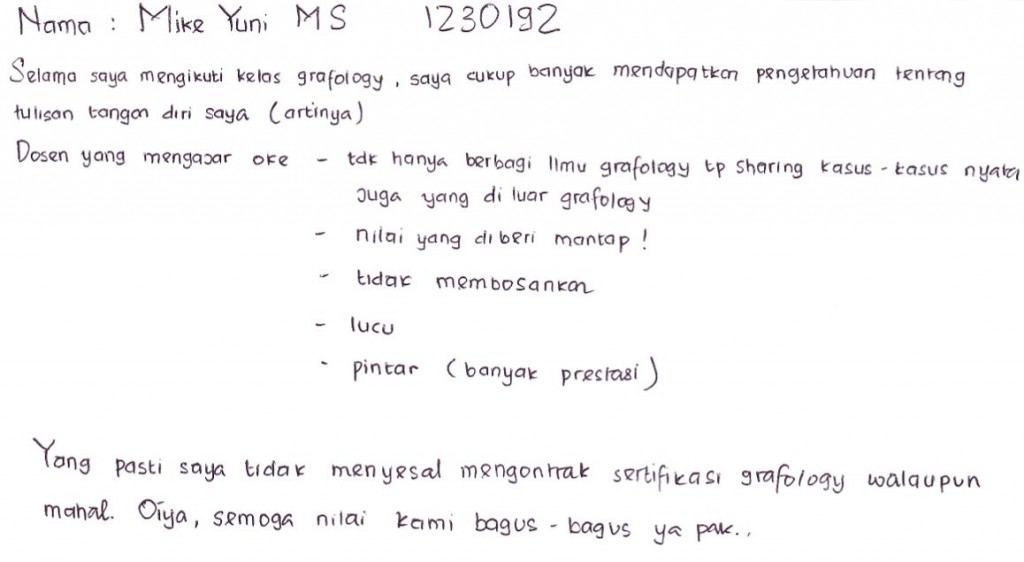 Nama : Mike Yuni MS 1230192
Selama saya mengikuti kelas grafology, saya cukup banyak mendapatkan pengetahuan tentang
tulisan tangan diri saya (artinya)
Dosen yang mengajar oke - tdk hanya berbagi Ilmu grafology tp sharing kasus - kasus nyata
juga yang di luar grafology
- nilai yang diberi mantap !
- tidak membosankan
- lucu
- pintar (banyak prestasi)
Yang pasti saya tidak menyesal mengontrak sertifikasi grafology walaupun
mahal. Oiya, semoga nilai kami bagus - bagus ya pak..